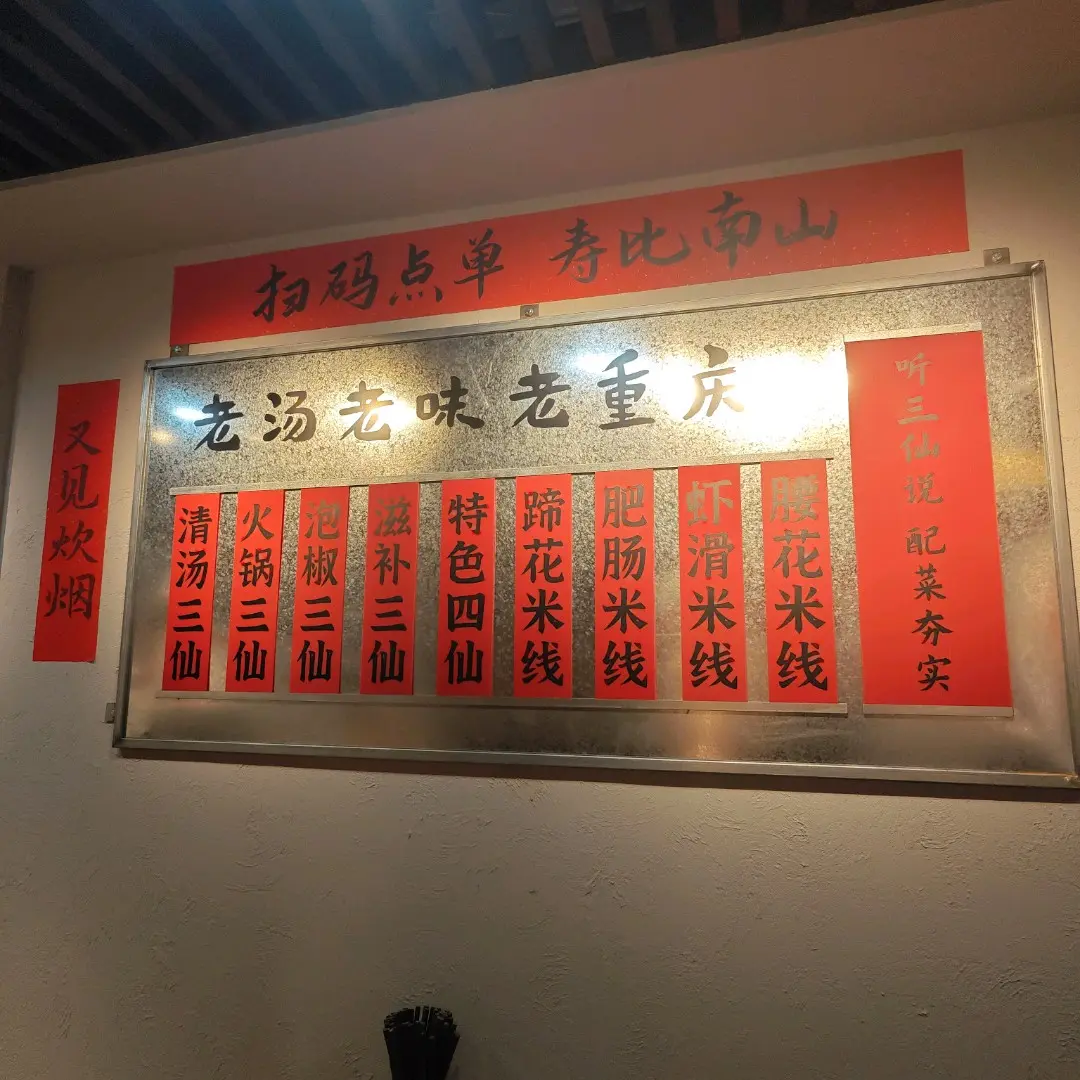 扫码点单 寿比南山
老汤老味老重庆
又见炊烟
清汤三仙
火锅三仙
泡椒三仙
滋补三仙
特色四仙
蹄花米线
肥肠米线
虾滑米线
腰花米线
听三仙说 配菜夯实